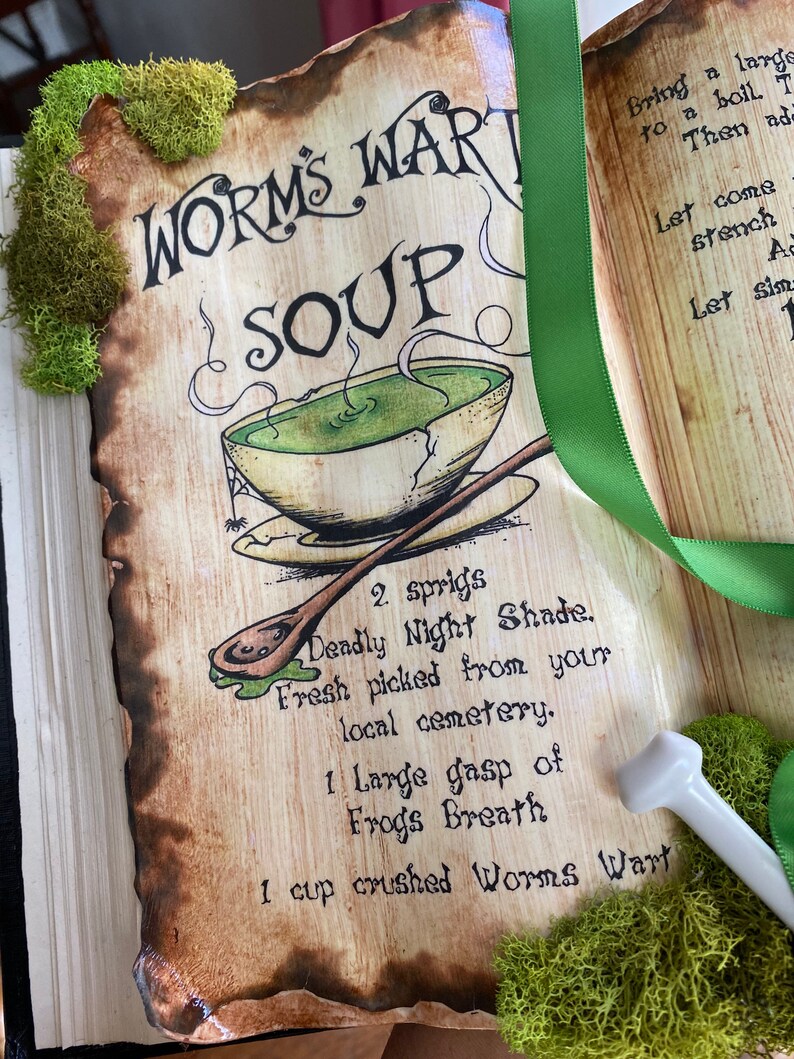 WORM'S WART
SOUP
2 sprigs
Deadly Night Shade.
Fresh picked from your
local cemetery.
1 Large gasp of
Frogs Breath
1 cup crushed Worms Wart
Bring a large
to a boil.
Then
Let come
stench
Let